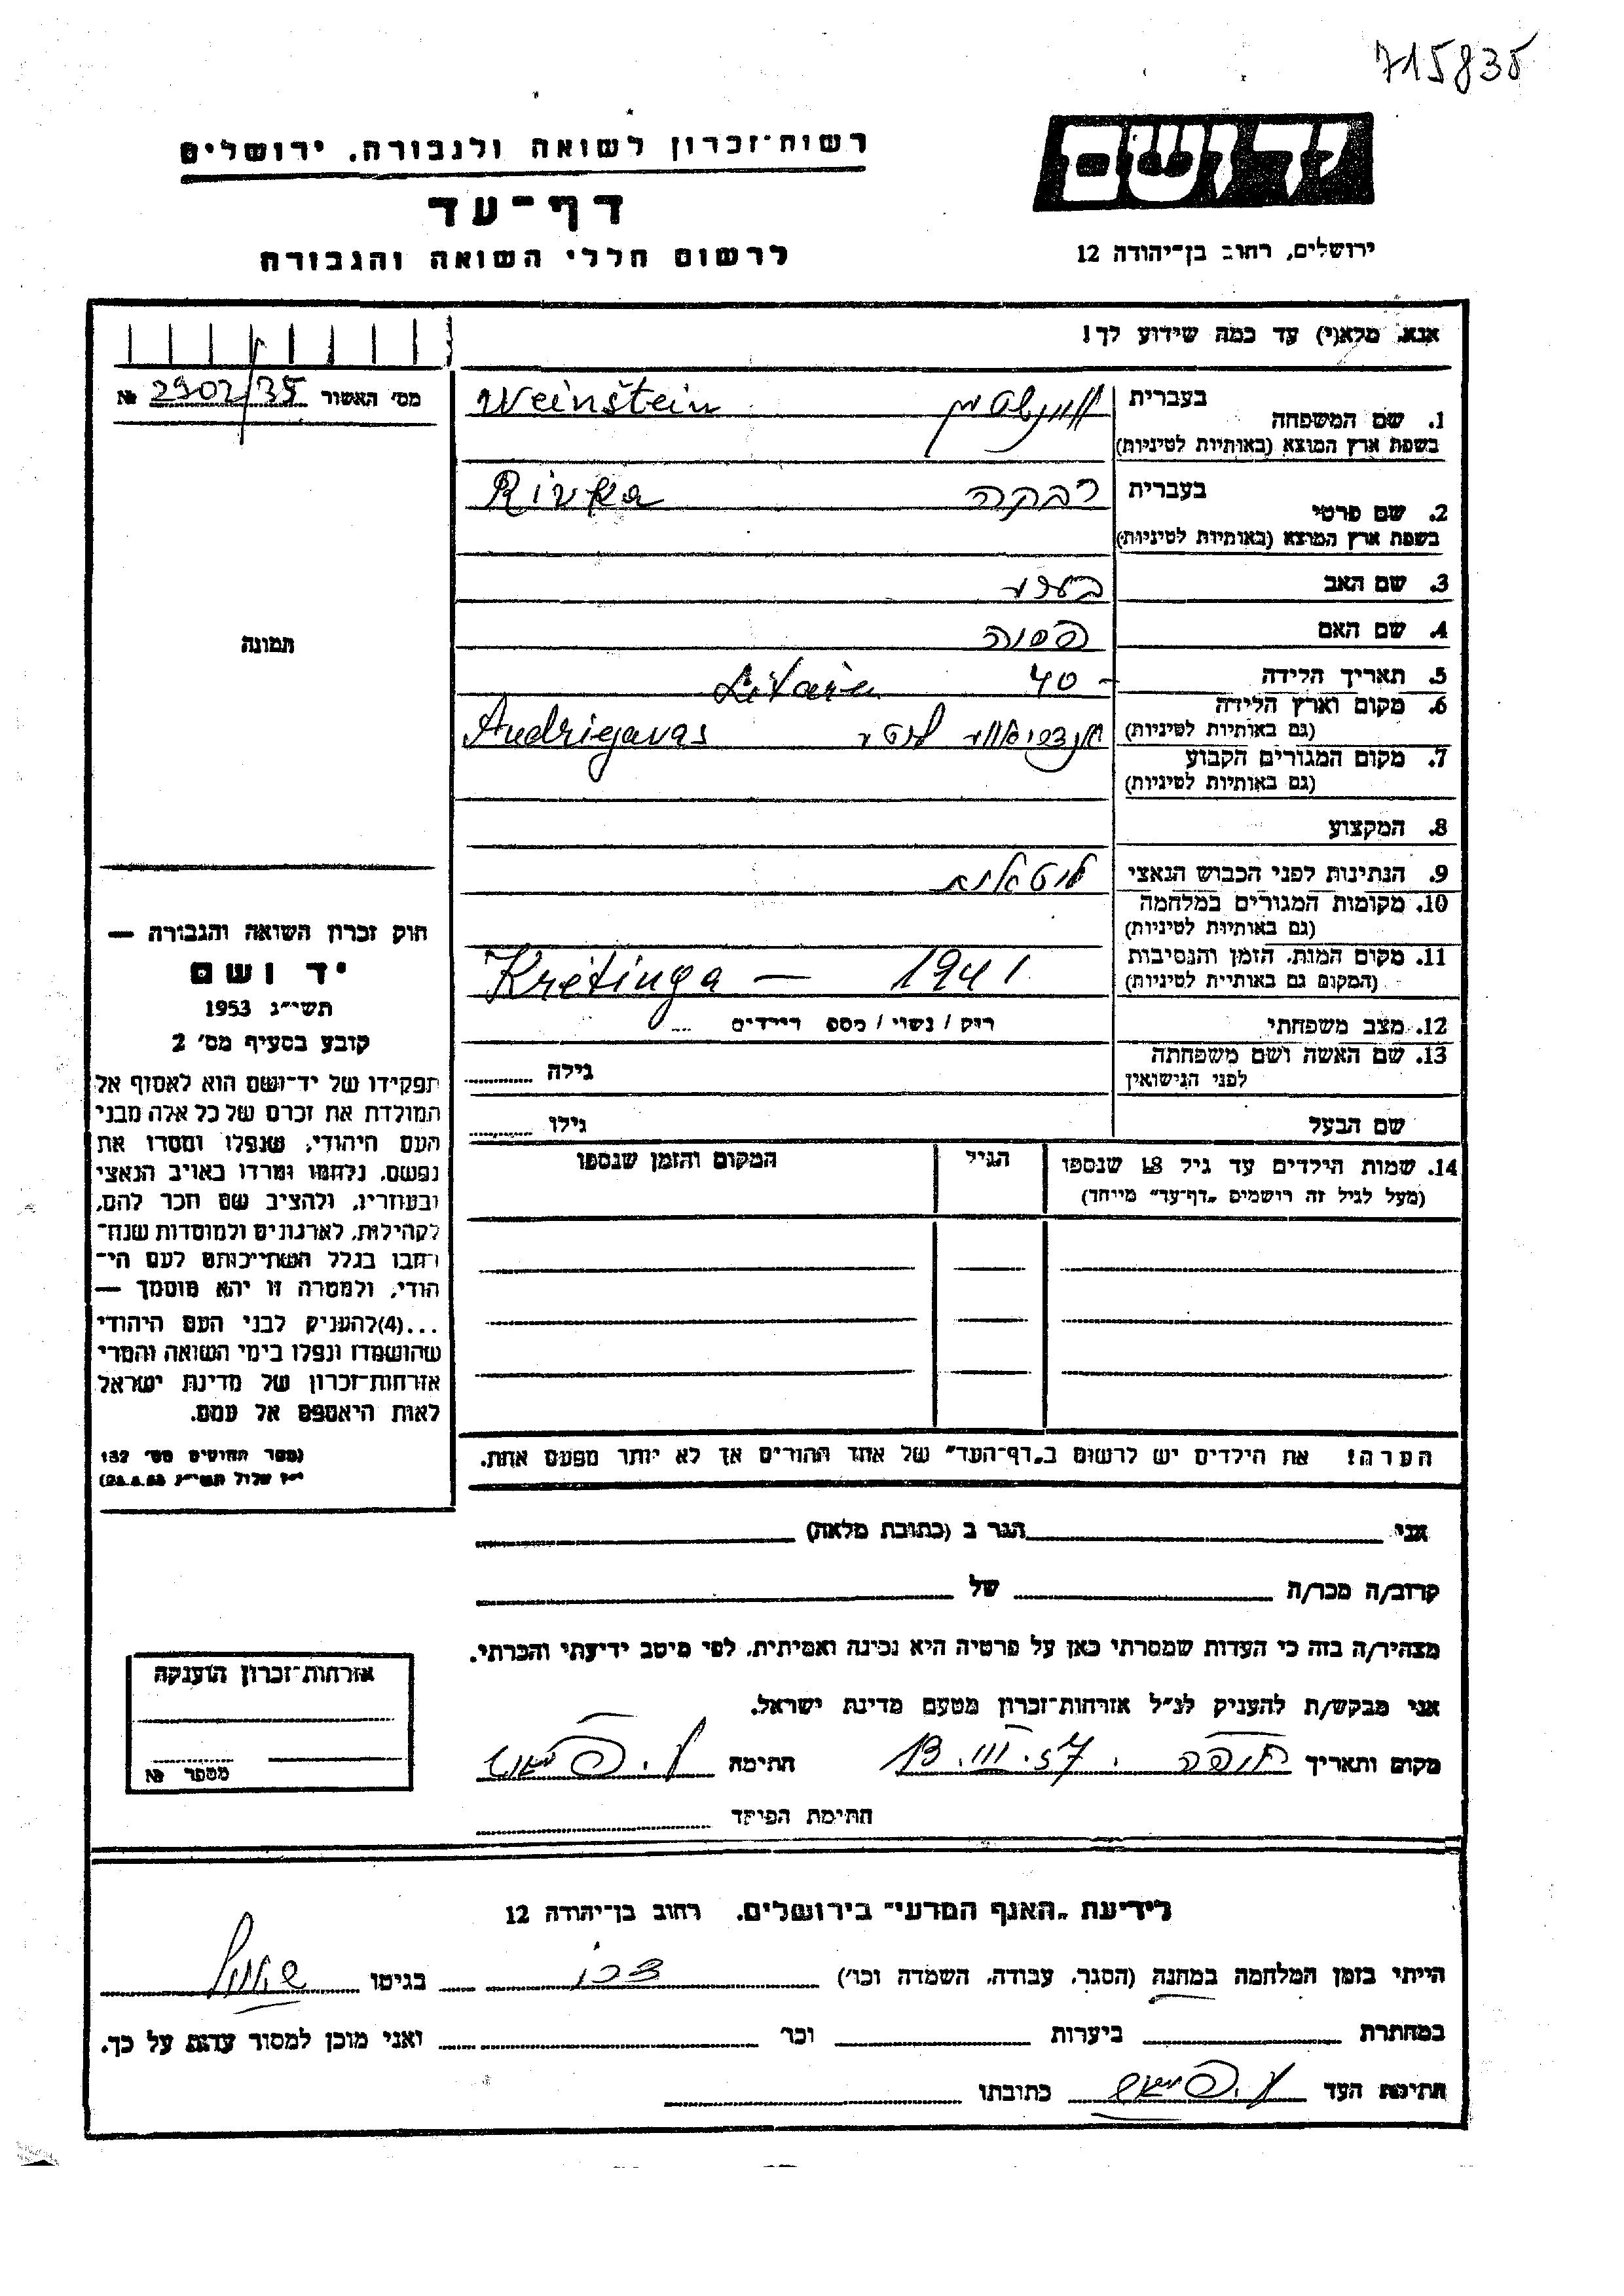 715835
יד ושם
רשות־זכרון לשואה ולגבורה, ירושלים
דף־עד
לרשום חללי השואה והגבורה
ירושלים, רחוב בן־יהודה 12
אנא, מלא(י) עד כמה שידוע לך!
מס' האשור 2902/35 №
1. שם המשפחה
בעברית
בשפת ארץ המוצא (באותיות לטיניות)
Weinstein
2. שם פרטי
בעברית רבקה
בשפת ארץ המוצא (באותיות לטיניות)
Rivka
3. שם האב
4. שם האם
5. תאריך הלידה 40 -
6. מקום וארץ הלידה
(גם באותיות לטיניות)
Andrigavas
7. מקום המגורים הקבוע
(גם באותיות לטיניות)
8. המקצוע
9. הנתינות לפני הכבוש הנאצי
10. מקומות המגורים במלחמה
(גם באותיות לטיניות)
11. מקום המות, הזמן והנסיבות
(המקום גם באותיות לטיניות)
Kretinga — 1941
12. מצב משפחתי
רוק / נשוי / מספ הילדים
13. שם האשה ושם משפחתה
לפני הנישואין
גילה
שם הבעל
גילו
14. שמות הילדים עד גיל 18 שנספו
(מעל לגיל זה רושמים „דף־עד" מיוחד)
הגיל
המקום והזמן שנספו
תמונה
חוק זכרון השואה והגבורה —
יד ושם
תשי״ג 1953
קובע בסעיף מס' 2
תפקידו של יד־ושם הוא לאסוף אל
המולדת את זכרם של כל אלה מבני
העם היהודי, שנפלו ומסרו את
נפשם, נלחמו ומרדו באויב הנאצי
ובעוזריו, ולהציב שם וזכר להם,
לקהילות, לארגונים ולמוסדות שנח־
רבו בגלל השתייכותם לעם הי־
הודי, ולמטרה זו יהא מוסמך —
...(4)להעניק לבני העם היהודי
שהושמדו ונפלו בימי השואה והמרי
אזרחות־זכרון של מדינת ישראל
לאות היאספם אל עמם.
(ספר החוקים מס' 132
י״ז אלול תשי״ג 28.8.53)
הערה! את הילדים יש לרשום ב„דף־העד" של אחד ההורים אך לא יותר מפעם אחת.
אני הגר ב (כתובת מלאה)
קרוב/ה מכר/ה של
מצהיר/ה בזה כי העדות שמסרתי כאן על פרטיה היא נכונה ואמיתית, לפי מיטב ידיעתי והכרתי.
אני מבקש/ת להעניק לנ״ל אזרחות־זכרון מטעם מדינת ישראל.
מקום ותאריך חיפה . 13.III.57 חתימה
חתימת הפוקד
אזרחות־זכרון הוענקה
מספר №
לידיעת „האגף המדעי" בירושלים, רחוב בן־יהודה 12
הייתי בזמן המלחמה במחנה (הסגר, עבודה, השמדה וכו') דכו בגיטו
במחתרת ביערות וכו' ואני מוכן למסור עדות על כך.
חתימת העד כתובתו